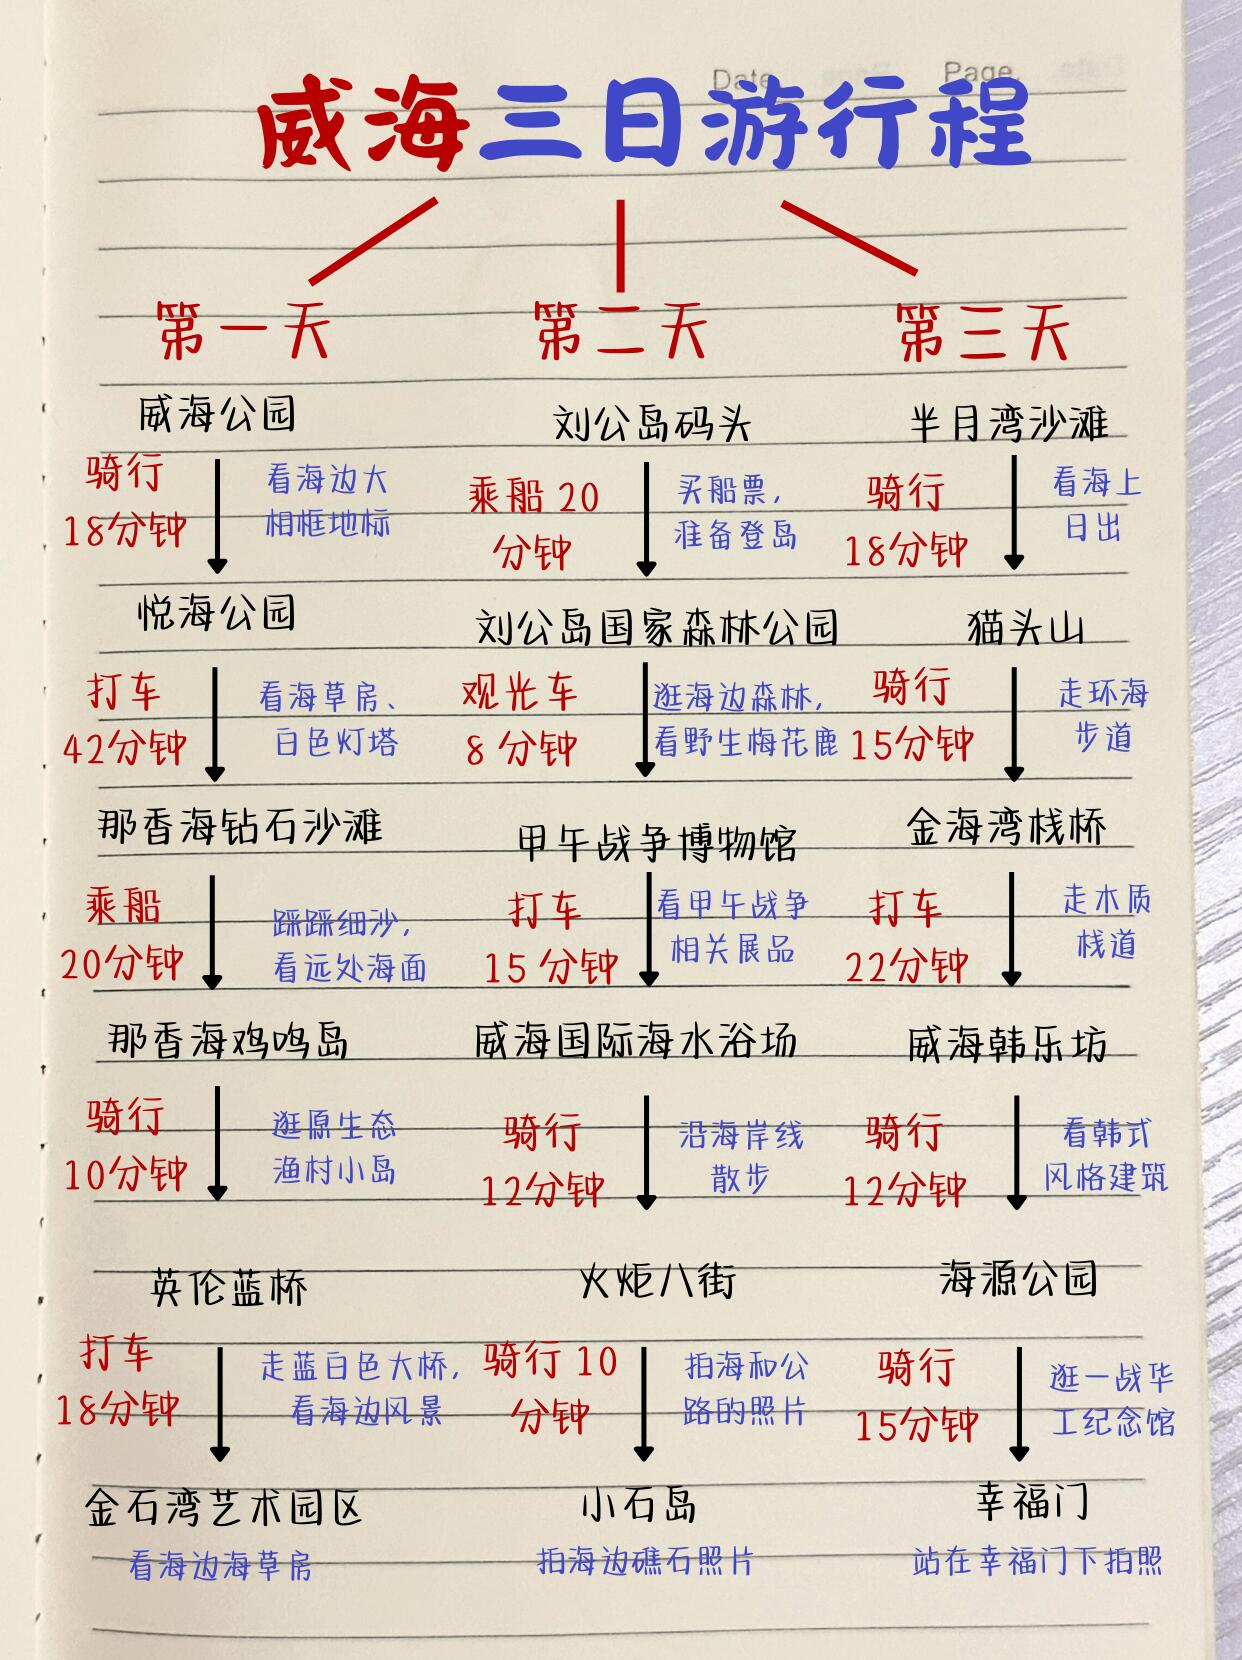 Date
Page.
威海三日游行程
第一天
威海公园
骑行
18分钟
看海边大
相框地标
悦海公园
打车
42分钟
看海草房、
白色灯塔
那香海钻石沙滩
乘船
20分钟
踩踩细沙,
看远处海面
那香海鸡鸣岛
骑行
10分钟
逛原生态
渔村小岛
英伦蓝桥
打车
18分钟
走蓝白色大桥,
看海边风景
金石湾艺术园区
看海边海草房
第二天
刘公岛码头
乘船 20
分钟
买船票,
准备登岛
刘公岛国家森林公园
观光车
8 分钟
逛海边森林,
看野生梅花鹿
甲午战争博物馆
打车
15 分钟
看甲午战争
相关展品
威海国际海水浴场
骑行
12分钟
沿海岸线
散步
火炬八街
骑行 10
分钟
拍海和公
路的照片
小石岛
拍海边礁石照片
第三天
半月湾沙滩
骑行
18分钟
看海上
日出
猫头山
骑行
15分钟
走环海
步道
金海湾栈桥
打车
22分钟
走木质
栈道
威海韩乐坊
骑行
12分钟
看韩式
风格建筑
海源公园
骑行
15分钟
逛一战华
工纪念馆
幸福门
站在幸福门下拍照